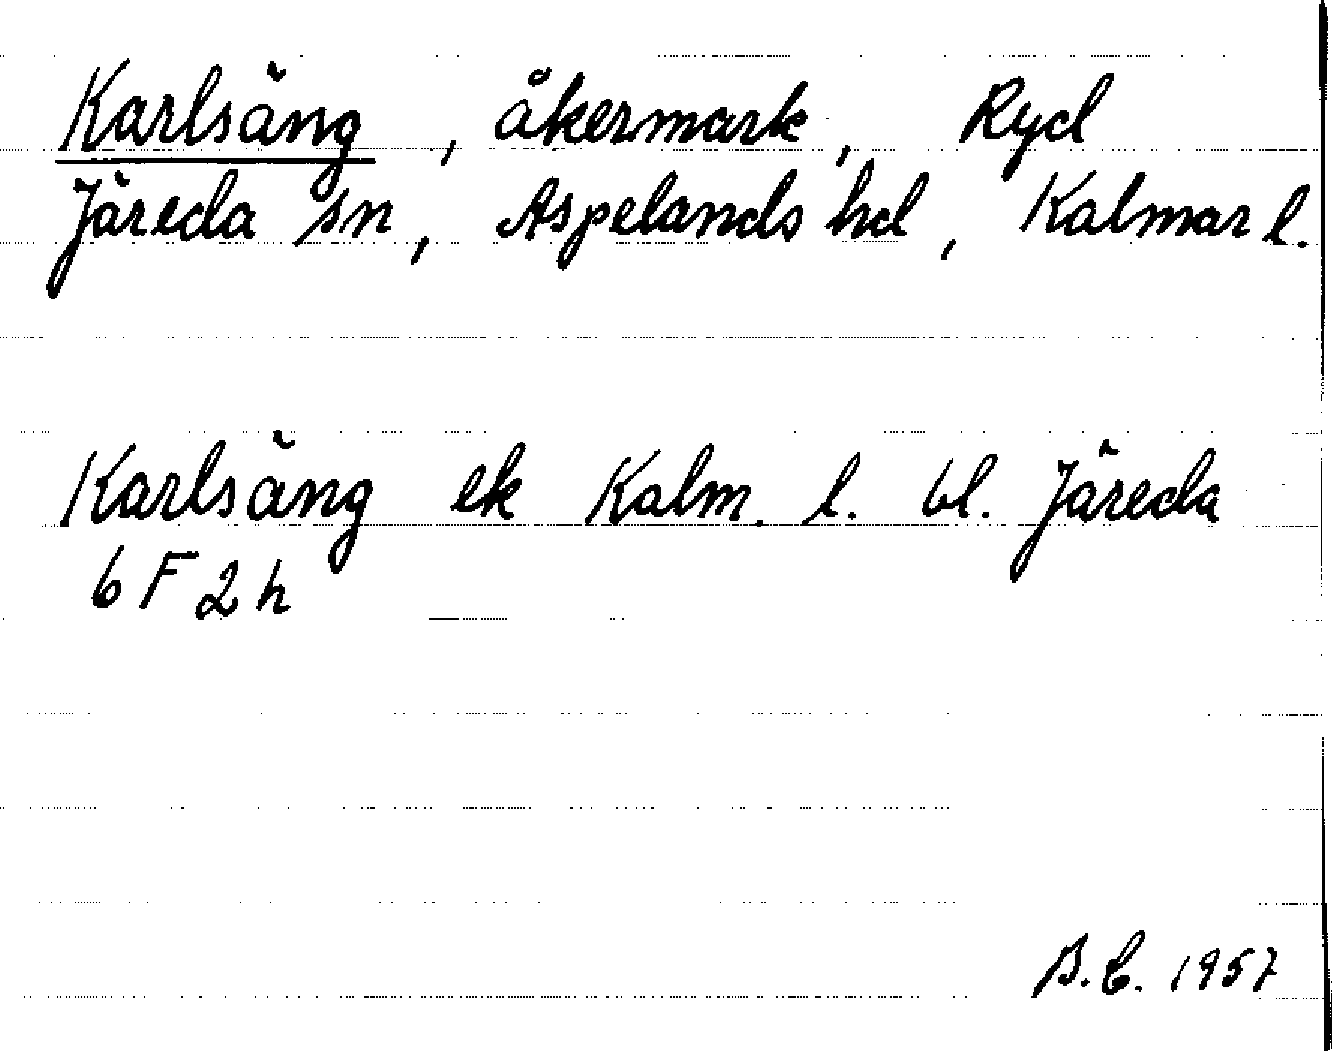 Karlsäng, åkermark, Ryd
Järeda sn, Aspelands hd, Kalmar l.
Karlsäng ek Kalm. l. bl. Järeda
6 F 2 h
B.C. 1957